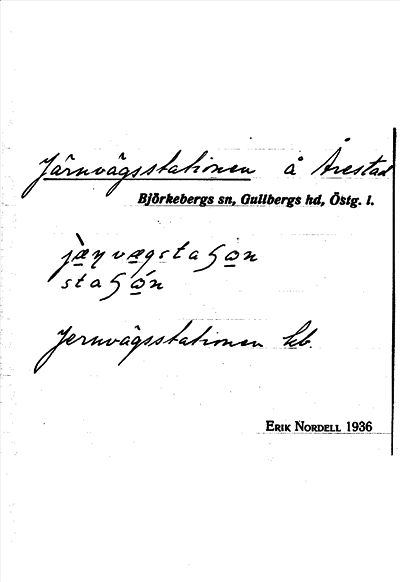 Järnvägsstationen å Årestad
Björkebergs sn, Gullbergs hd, Östg. l.
Jernvägsstationen hb.
ERIK NORDELL 1936